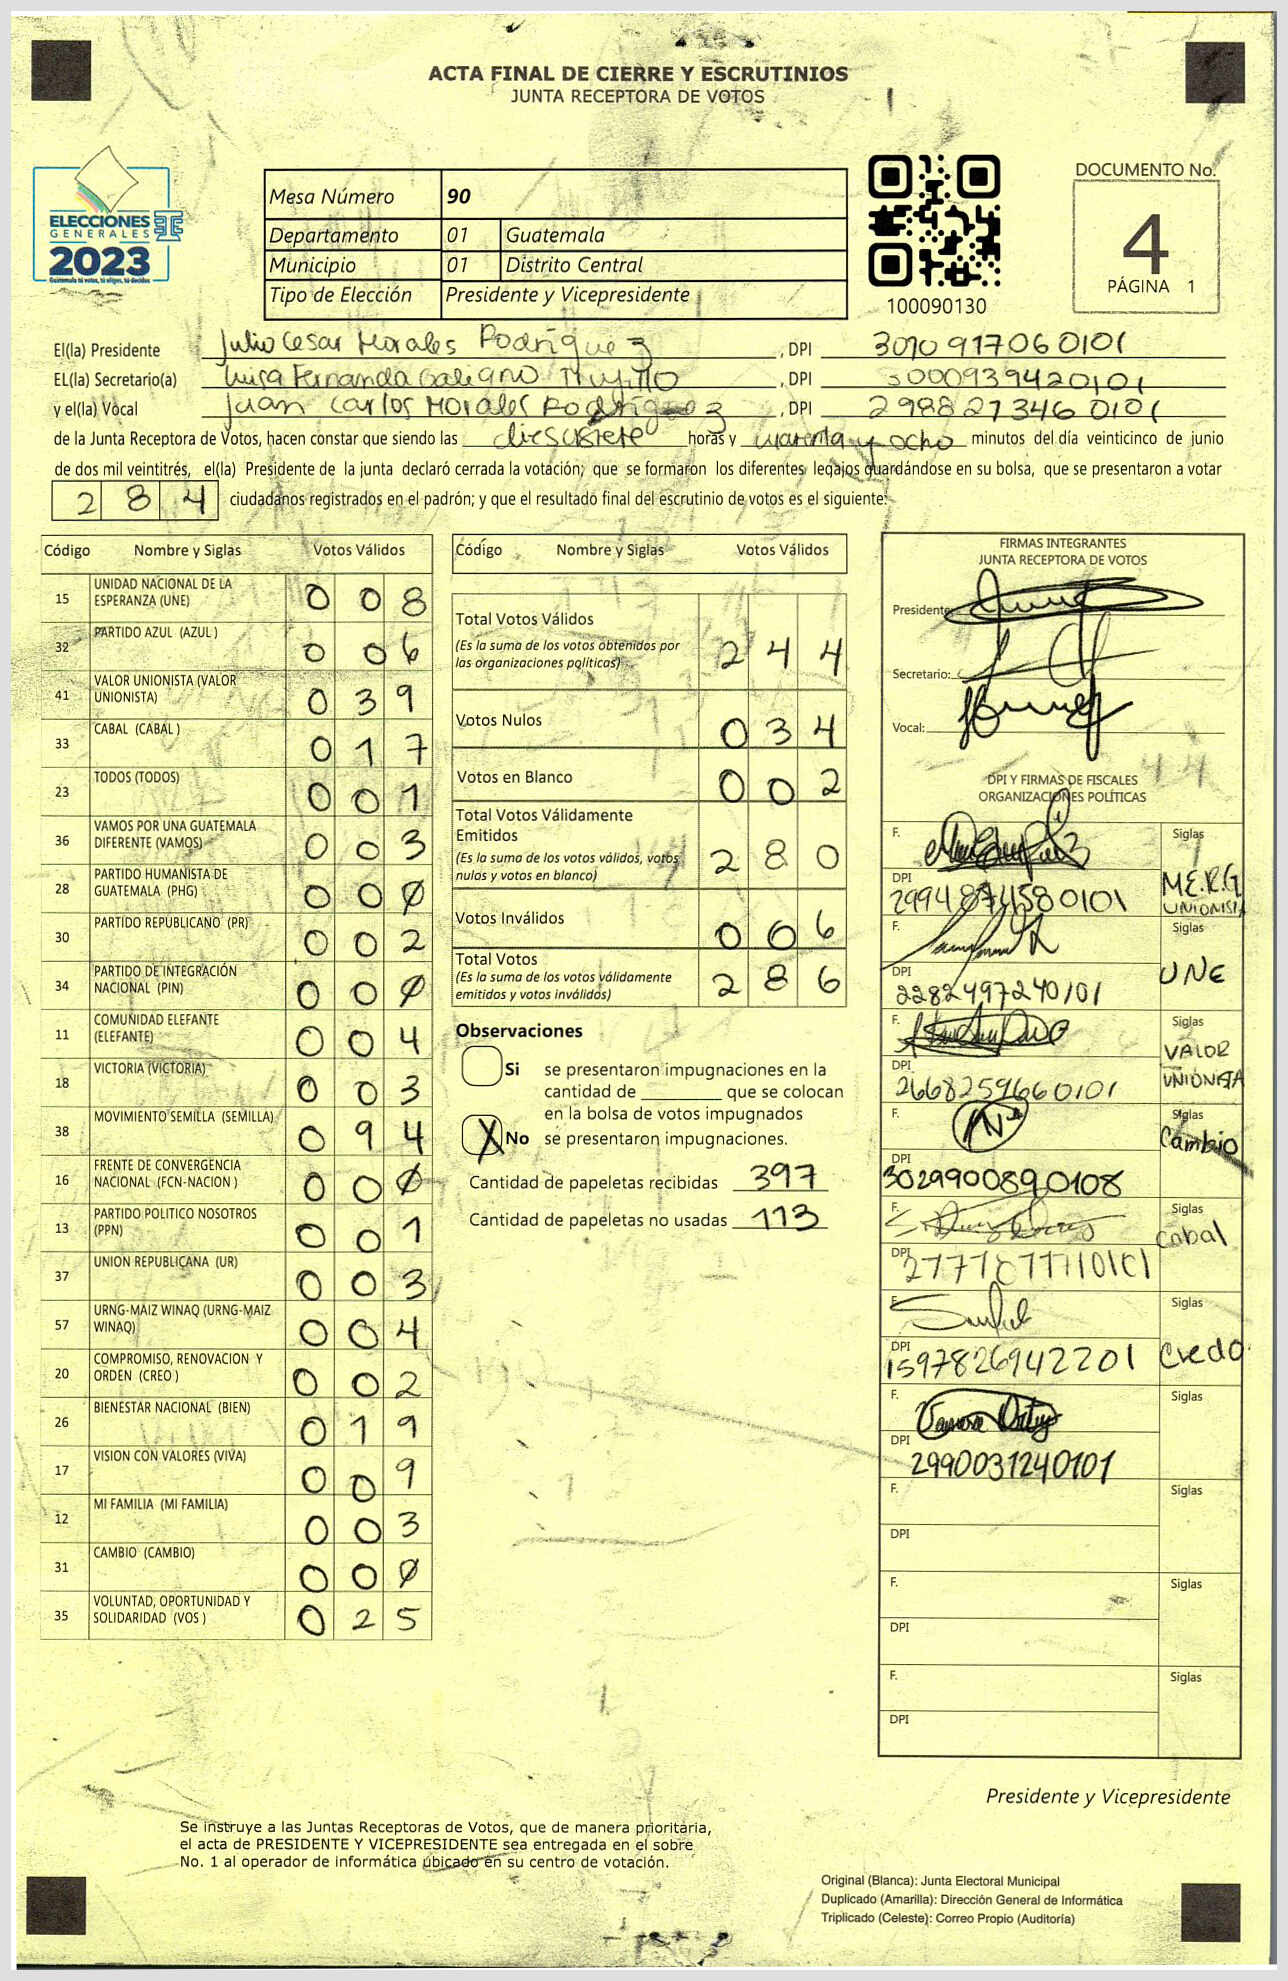 ACTA FINAL DE CIERRE Y ESCRUTINIOS
JUNTA RECEPTORA DE VOTOS
ELECCIONES
GENERALES
2023
Guatemala tú votas, tú eliges, tú decides
Mesa Número 90
Departamento 01 Guatemala
Municipio 01 Distrito Central
Tipo de Elección Presidente y Vicepresidente
100090130
DOCUMENTO No.
4
PÁGINA 1
El(la) Presidente Julio Cesar Morales Rodríguez , DPI 3010917060101
EL(la) Secretario(a) Luisa Fernanda Galeano Trujillo , DPI 3000939420101
y el(la) Vocal Juan Carlos Morales Rodríguez , DPI 298827346 0101
de la Junta Receptora de Votos, hacen constar que siendo las diesciete horas y cuarenta y ocho minutos del día veinticinco de junio
de dos mil veintitrés, el(la) Presidente de la junta declaró cerrada la votación; que se formaron los diferentes legajos guardándose en su bolsa, que se presentaron a votar
2 8 4 ciudadanos registrados en el padrón; y que el resultado final del escrutinio de votos es el siguiente:
Código Nombre y Siglas Votos Válidos
15 UNIDAD NACIONAL DE LA ESPERANZA (UNE) 0 0 8
32 PARTIDO AZUL (AZUL ) 0 0 6
41 VALOR UNIONISTA (VALOR UNIONISTA) 0 3 9
33 CABAL (CABAL ) 0 1 7
23 TODOS (TODOS) 0 0 1
36 VAMOS POR UNA GUATEMALA DIFERENTE (VAMOS) 0 0 3
28 PARTIDO HUMANISTA DE GUATEMALA (PHG) 0 0 0
30 PARTIDO REPUBLICANO (PR) 0 0 2
34 PARTIDO DE INTEGRACIÓN NACIONAL (PIN) 0 0 0
11 COMUNIDAD ELEFANTE (ELEFANTE) 0 0 4
18 VICTORIA (VICTORIA) 0 0 3
38 MOVIMIENTO SEMILLA (SEMILLA) 0 9 4
16 FRENTE DE CONVERGENCIA NACIONAL (FCN-NACION ) 0 0 0
13 PARTIDO POLITICO NOSOTROS (PPN) 0 0 1
37 UNION REPUBLICANA (UR) 0 0 3
57 URNG-MAIZ WINAQ (URNG-MAIZ WINAQ) 0 0 4
20 COMPROMISO, RENOVACION Y ORDEN (CREO ) 0 0 2
26 BIENESTAR NACIONAL (BIEN) 0 1 9
17 VISION CON VALORES (VIVA) 0 0 9
12 MI FAMILIA (MI FAMILIA) 0 0 3
31 CAMBIO (CAMBIO) 0 0 0
35 VOLUNTAD, OPORTUNIDAD Y SOLIDARIDAD (VOS ) 0 2 5
Código Nombre y Siglas Votos Válidos
Total Votos Válidos 2 4 4
(Es la suma de los votos obtenidos por
las organizaciones políticas)
Votos Nulos 0 3 4
Votos en Blanco 0 0 2
Total Votos Válidamente
Emitidos 2 8 0
(Es la suma de los votos válidos, votos
nulos y votos en blanco)
Votos Inválidos 0 0 6
Total Votos 2 8 6
(Es la suma de los votos válidamente
emitidos y votos inválidos)
Observaciones
Si se presentaron impugnaciones en la
cantidad de ________ que se colocan
en la bolsa de votos impugnados
X No se presentaron impugnaciones.
Cantidad de papeletas recibidas 397
Cantidad de papeletas no usadas 113
FIRMAS INTEGRANTES
JUNTA RECEPTORA DE VOTOS
Presidente:
Secretario:
Vocal:
DPI Y FIRMAS DE FISCALES
ORGANIZACIONES POLÍTICAS
F. Siglas
DPI 2994874580101 M.E.R.G UNIONISTA
F. Siglas
DPI 2282497240101 UNE
F. Siglas
DPI 2668259660101 VALOR UNIONISTA
F. Siglas
DPI 3029900890108 Cambio
F. Siglas
DPI Cabal
F. Siglas
DPI 1597826942201 Credo
F. Siglas
DPI 2990031240101
F. Siglas
DPI
F. Siglas
DPI
F. Siglas
DPI
Presidente y Vicepresidente
Se instruye a las Juntas Receptoras de Votos, que de manera prioritaria,
el acta de PRESIDENTE Y VICEPRESIDENTE sea entregada en el sobre
No. 1 al operador de informática ubicado en su centro de votación.
Original (Blanca): Junta Electoral Municipal
Duplicado (Amarilla): Dirección General de Informática
Triplicado (Celeste): Correo Propio (Auditoría)